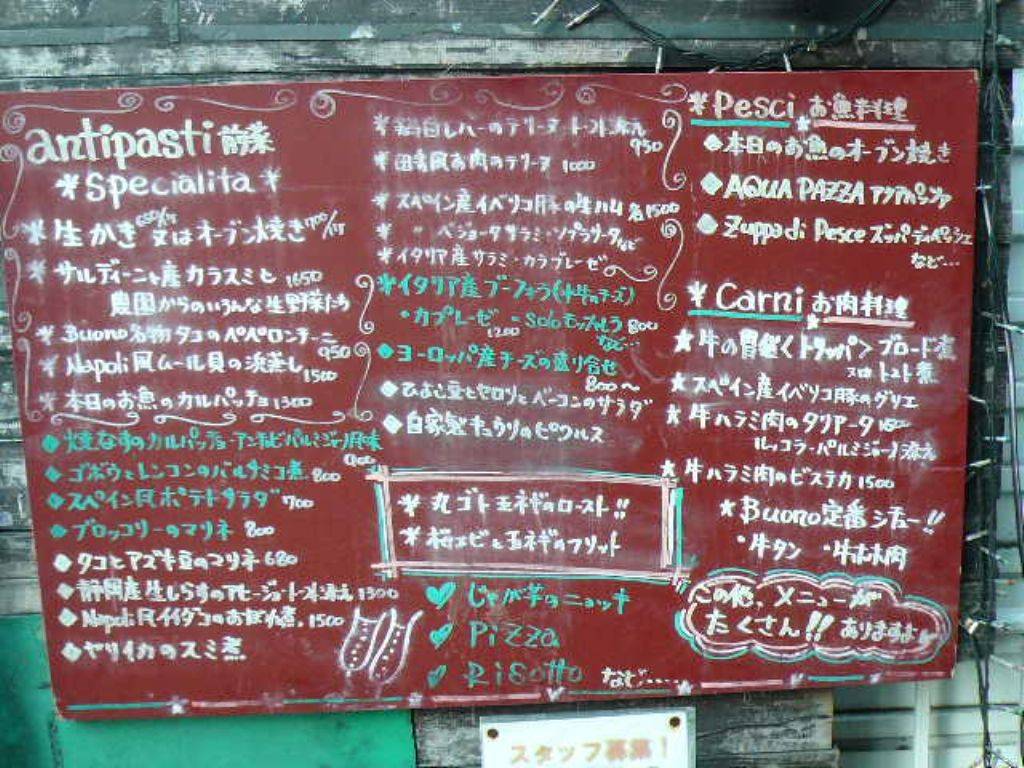 antipasti 前菜
* Specialita *
* 生かき 650/1ヶ 又はオーブン焼き 700/1ヶ
* サルディーニャ産カラスミと 1650
農園からのいろんな生野菜たち
* Buono名物タコのペペロンチーニ 950
* Napoli風ムール貝の浜蒸し 1500
* 本日のお魚のカルパッチョ 1300
◆ 焼なすのカルパッチョ アンチョビパルミジャーノ風味 900
◆ ゴボウとレンコンのバルサミコ煮 800
◆ スペイン風ポテトサラダ 700
◆ ブロッコリーのマリネ 800
◆ タコとアズキ豆のマリネ 680
◆ 静岡産生しらすのアヒージョ トースト添え 1300
◆ Napoli風イイダコのおぼれ煮 1500
◆ ヤリイカのスミ煮
* 鶏白レバーのテリーヌ トースト添え 950
* 田舎風お肉のテリーヌ 1000
* スペイン産イベリコ豚の生ハム 1500
* 〃 ベジョータサラミ・ソプラサータなど
* イタリア産サラミ・カラブレーゼ
* イタリア産ブーファラ(水牛のチーズ)
・カプレーゼ 1200 ・Soloモッツァレラ 800
など…
◆ ヨーロッパ産チーズの盛り合せ 800〜
◆ ひよこ豆とセロリとベーコンのサラダ
◆ 自家製キュウリのピクルス
* 丸ゴト玉ネギのロースト!!
* 桜エビと玉ネギのフリット
♥ じゃが芋のニョッキ
♥ Pizza
♥ Risotto など……
* Pesci お魚料理
◆ 本日のお魚のオーブン焼き
◆ AQUA PAZZA アクアパッツァ
◆ Zuppa di Pesce ズッパ ディ ペッシェ
など…
* Carni お肉料理
★ 牛の胃袋<トリッパ>ブロード煮
又はトマト煮
★ スペイン産イベリコ豚のグリエ
★ 牛ハラミ肉のタリアータ 1500
ルッコラ・パルミジャーノ添え
★ 牛ハラミ肉のビステカ 1500
★ Buono定番シチュー!!
・牛タン ・牛ホホ肉
この他、メニューが
たくさん!! ありますよ
スタッフ募集!